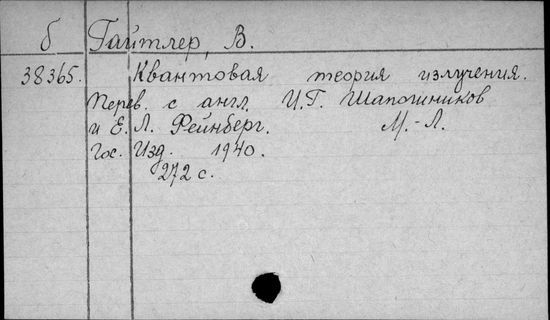 б Гайтлер, В.
38365. Квантовая теория излучения.
Перев. с англ. И.Г. Шапошников
и Е. Л. Фейнберг. М.-Л.
Гос. Изд. 1940.
272 с.